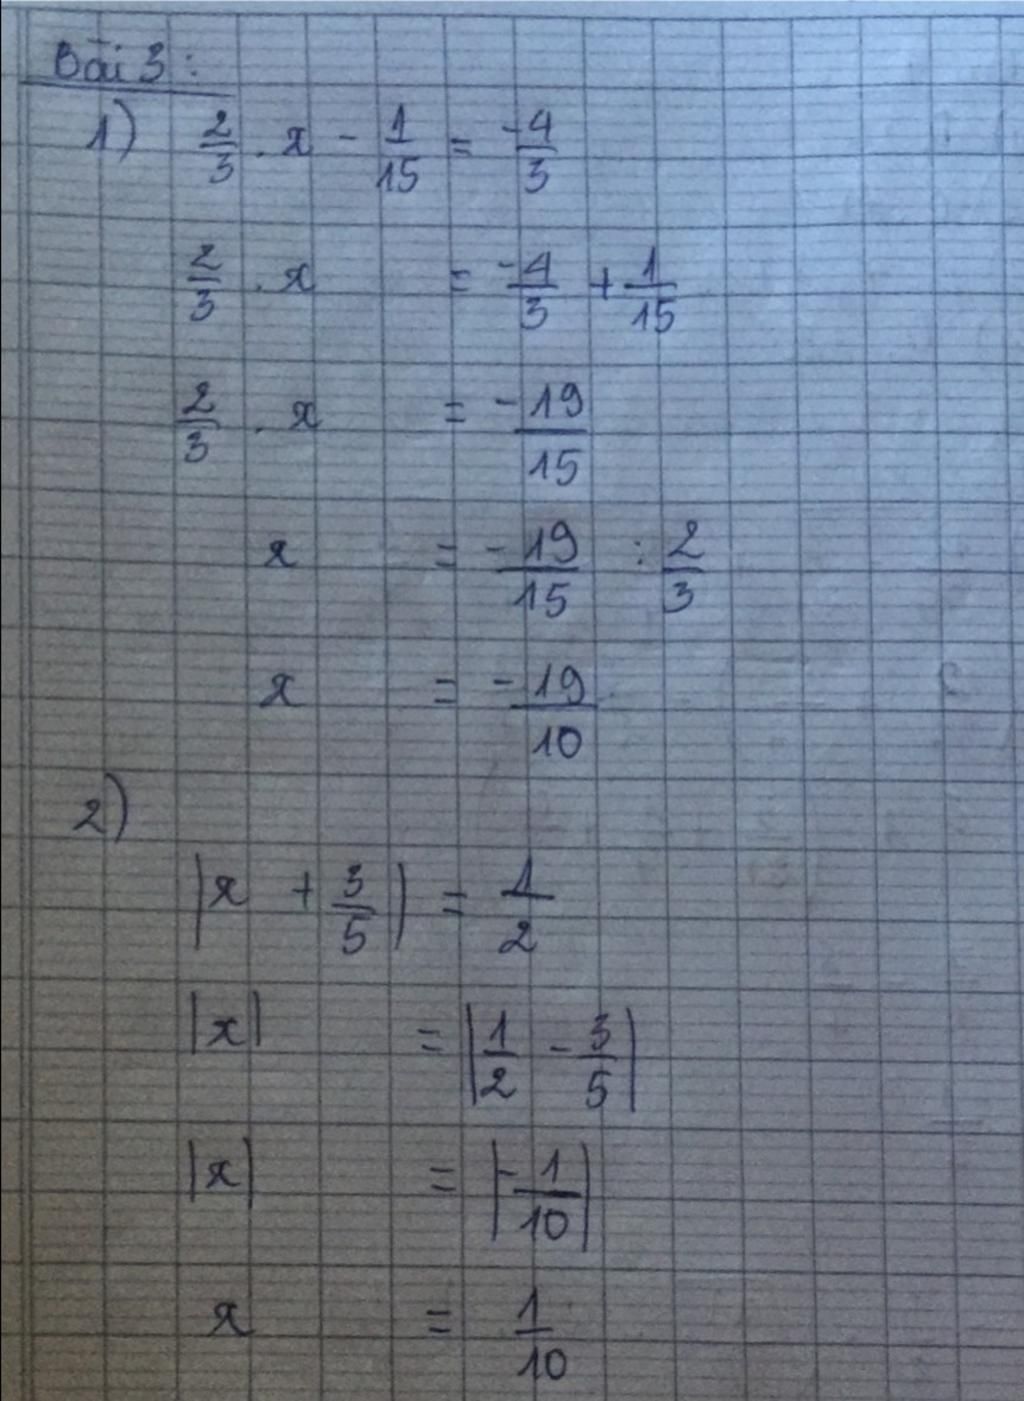 Bài 3:
1) 2/3 . x - 1/15 = -4/3
2/3 . x = -4/3 + 1/15
2/3 . x = -19/15
x = -19/15 : 2/3
x = -19/10
2)
|x + 3/5| = 1/2
|x| = |1/2 - 3/5|
|x| = |-1/10|
x = 1/10